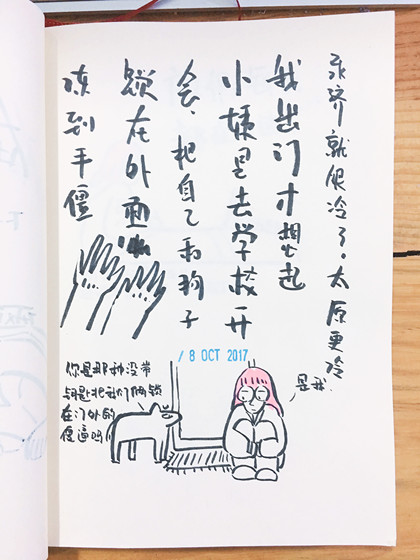 永济就很冷了。太原更冷
我出门才想起
小姨是去学校开
会、把自己和狗子
锁在外面
冻到手僵
/ 8 OCT 2017
你是那种没带
钥匙把我们俩锁
在门外的
傻逼吗!!
是我.